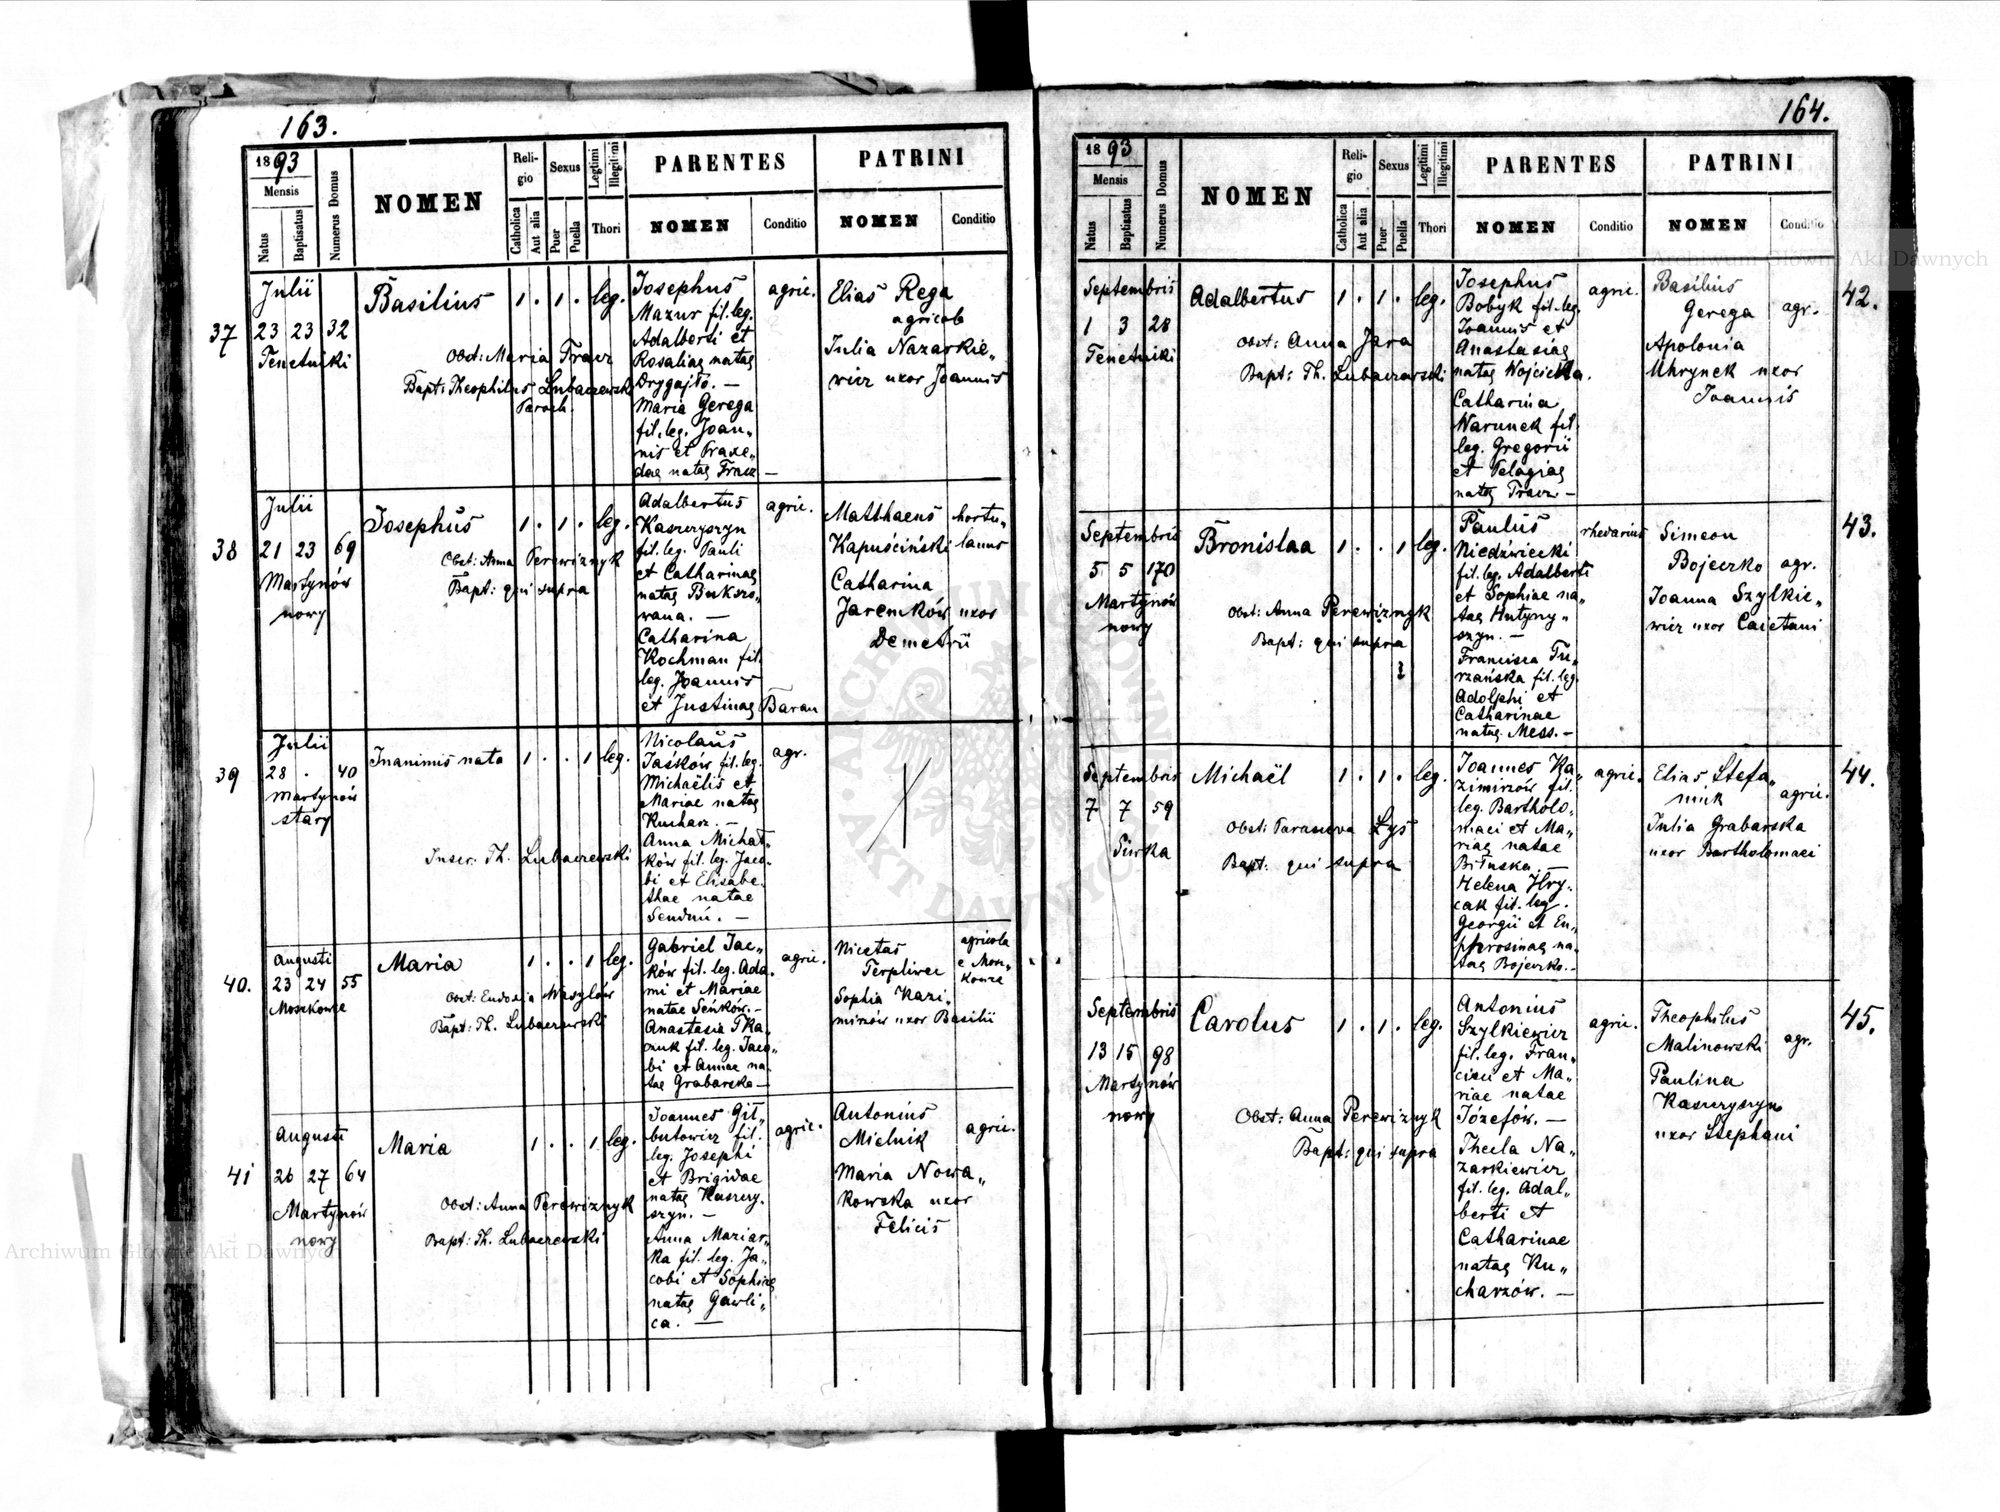 163.
1893
Mensis
Natus
Baptisatus
Numerus Domus
NOMEN
Religio
Catholica
Aut alia
Sexus
Puer
Puella
Legtimi
Illegitimi
Thori
PARENTES
NOMEN
Conditio
PATRINI
NOMEN
Conditio
37
Julii
23 23 32
Tenetniki
Basilius 1 . 1 . leg.
Obst: Maria Tracz
Bapt: Theophilus Lubaczewski
Paroch.
Josephus
Mazur fil. leg.
Adalberti et
Rosaliae natae
Drygajło. —
Maria Gerega
fil. leg. Joan„
nis et Praxe„
dae natae Tracz —
agric.
Elias Rega
agricola
Julia Nazarkie„
wicz uxor Joannis
38
Julii
21 23 69
Martynów
nowy
Josephus 1 . 1 . leg.
Obst: Anna Perewiznyk
Bapt: qui supra
Adalbertus
Kaszczyszyn
fil. leg. Pauli
et Catharinae
natae Bukszo„
wana. —
Catharina
Kochman fil.
leg. Joannis
et Justinae Baran
agric.
Matthaeus hortu„
Kapuściński lanus
Catharina
Jaremków uxor
Demetrii
39
Julii
28 . 40
Martynów
stary
Inanimis nata 1 . . 1 leg.
Inscr. Th. Lubaczewski
Nicolaus
Jaśków fil. leg.
Michaëlis et
Mariae natae
Kucharz. —
Anna Michał„
ków fil. leg. Jaco„
bi et Elisabe„
thae natae
agr.
40.
Augusti
23 24 55
Moszkowce
Maria 1 . . 1 leg.
Obst: Eudoxia Wasylów
Bapt: Th. Lubaczewski
Gabriel Jac„
ków fil. leg. Ada„
mi et Mariae
natae Seńków. —
Anastasia Tka„
czuk fil. leg. Jaco„
bi et Annae na„
tae Grabarska —
agric.
Nicetas
Terpliwec
Sophia Kazi„
mirzów uxor Basilii
agricola
e Mosz„
kowce
41
Augusti
26 27 64
Martynów
nowy
Maria 1 . . 1 leg.
Obst: Anna Perewiznyk
Bapt: Th. Lubaczewski
Joannes Git„
butowicz fil.
leg. Josephi
et Brigidae
natae Kaszczy„
szyn. —
Anna Mariar„
ka fil. leg. Ja„
cobi et Sophiae
natae Gawli„
ca. —
agric.
Antonius
Mielnik
Maria Nowa„
kowska uxor
Felicis
agric.
164.
1893
Mensis
Natus
Baptisatus
Numerus Domus
NOMEN
Religio
Catholica
Aut alia
Sexus
Puer
Puella
Legtimi
Illegitimi
Thori
PARENTES
NOMEN
Conditio
PATRINI
NOMEN
Conditio
42.
Septembris
1 3 28
Tenetniki
Adalbertus 1 . 1 . leg.
Obst: Anna Jara
Bapt: Th. Lubaczewski
Josephus
Bobyk fil. leg.
Joannis et
Anastasiae
natae Wojcicka.
Catharina
Warunek fil.
leg. Gregorii
et Pelagiae
natae Tracz —
agric.
Basilius
Gerega agr.
Apolonia
Uhrynek uxor
Joannis
43.
Septembris
5 5 170
Martynów
nowy
Bronislaa 1 . . 1 leg.
Obst: Anna Perewiznyk
Bapt: qui supra
Paulus
Niedźwiecki
fil. leg. Adalberti
et Sophiae na„
tae Hutyny„
szyn. —
Francisca Tu„
rzańska fil. leg.
Adolphi et
Catharinae
natae Mess. —
rhedarius
Simeon
Bojeczko agr.
Joanna Szylkie„
wicz uxor Caietani
44.
Septembris
7 7 59
Siwka
Michaël 1 . 1 . leg.
Obst: Parascva Łyś
Bapt: qui supra
Joannes Ka„
zimirzów fil.
leg. Bartholo„
maei et Ma„
riae natae
Biłuska. —
Helena Hry„
cak fil. leg.
Georgii et Eu„
phrosinae na„
tae Bojeczko. —
agric.
Elias Stefa„
niuk agric.
Julia Grabarska
uxor Bartholomaei
45.
Septembris
13 15 98
Martynów
nowy
Carolus 1 . 1 . leg.
Obst: Anna Perewiznyk
Bapt: qui supra
Antonius
Szylkiewicz
fil. leg. Fran„
cisci et Ma„
riae natae
Józefów. —
Thecla Na„
zarkiewicz
fil. leg. Adal„
berti et
Catharinae
natae Ku„
charzów. —
agric.
Theophilus
Malinowski agr.
Paulina
Kaszczyszyn
uxor Stephani
Archiwum Główne Akt Dawnych
Archiwum Główne Akt Dawnych
ARCHIWUM GŁÓWNE AKT DAWNYCH